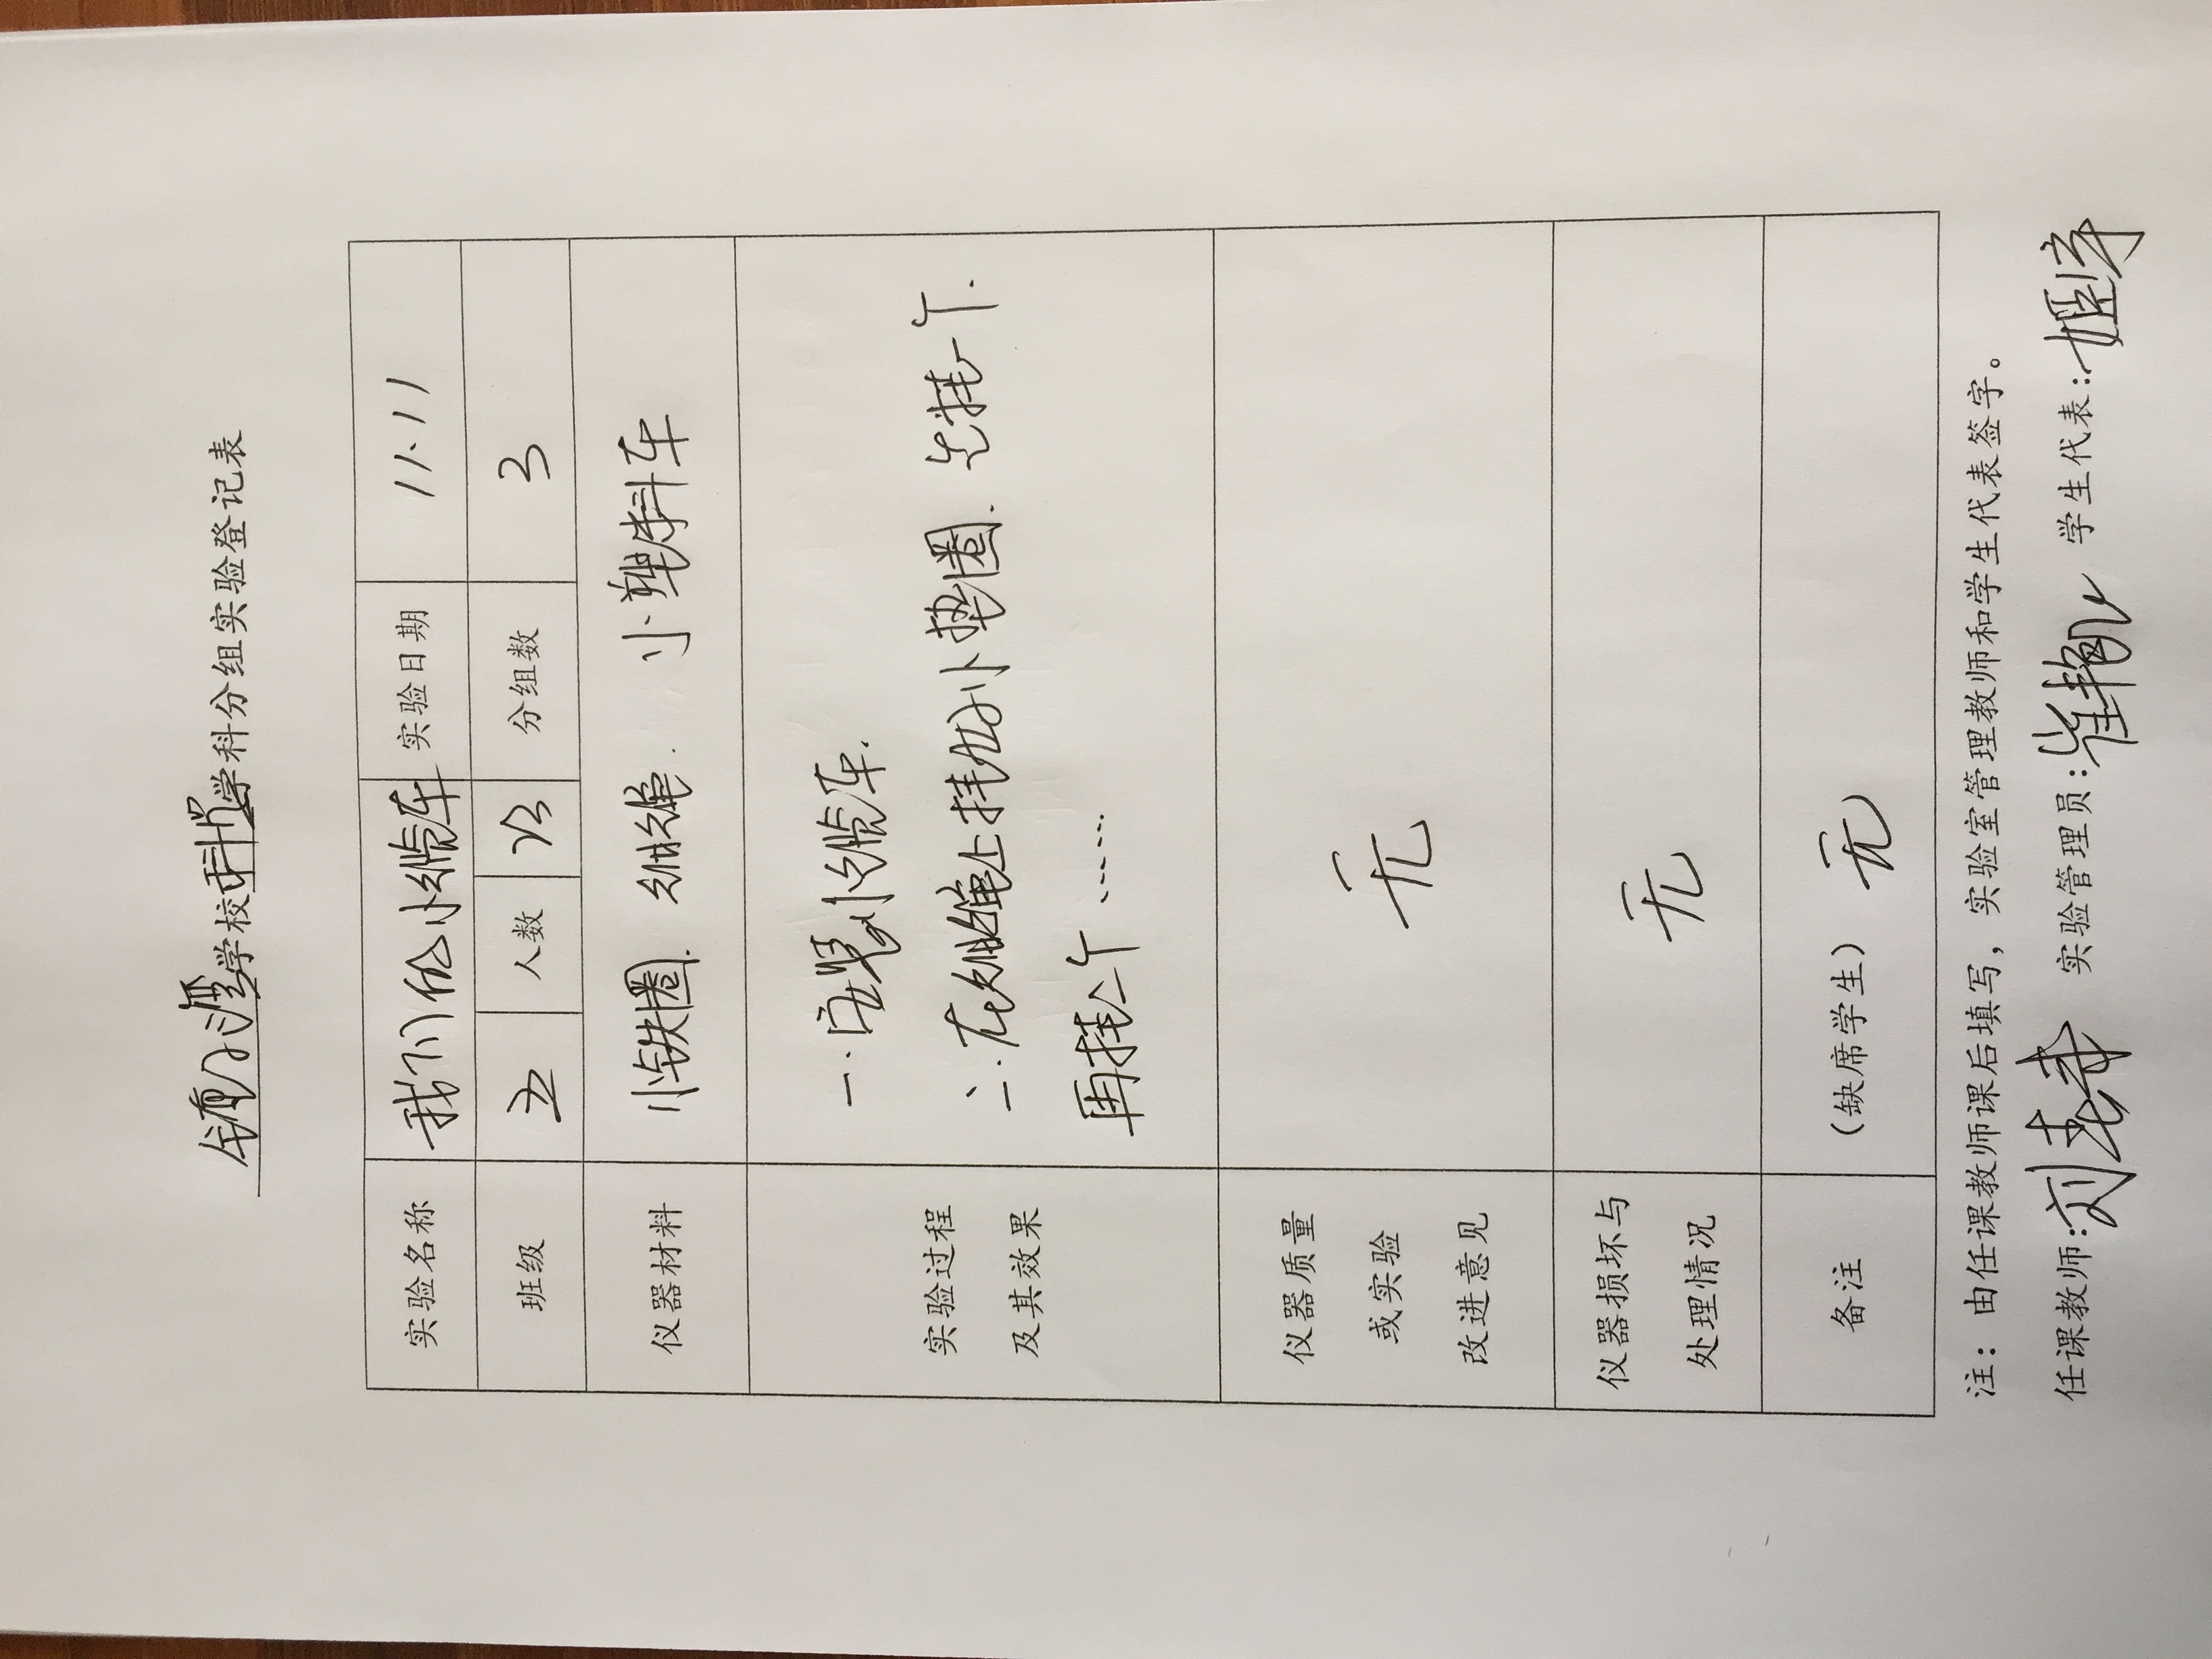 学校科学学科分组实验登记表
实验名称 我们的小缆车 实验日期 11.11
班级 五 人数 13 分组数 3
仪器材料 小铁圈. 细绳. 小塑料车
实验过程
及其效果
一.安装小缆车.
二.在细绳上挂好小垫圈. 先挂一个.
再挂一个……
仪器质量
或实验
改进意见
无
仪器损坏与
处理情况
无
备注 (缺席学生) 无
注：由任课教师课后填写，实验室管理教师和学生代表签字。
任课教师: 刘 实验管理员: 崔艳 学生代表: 姬